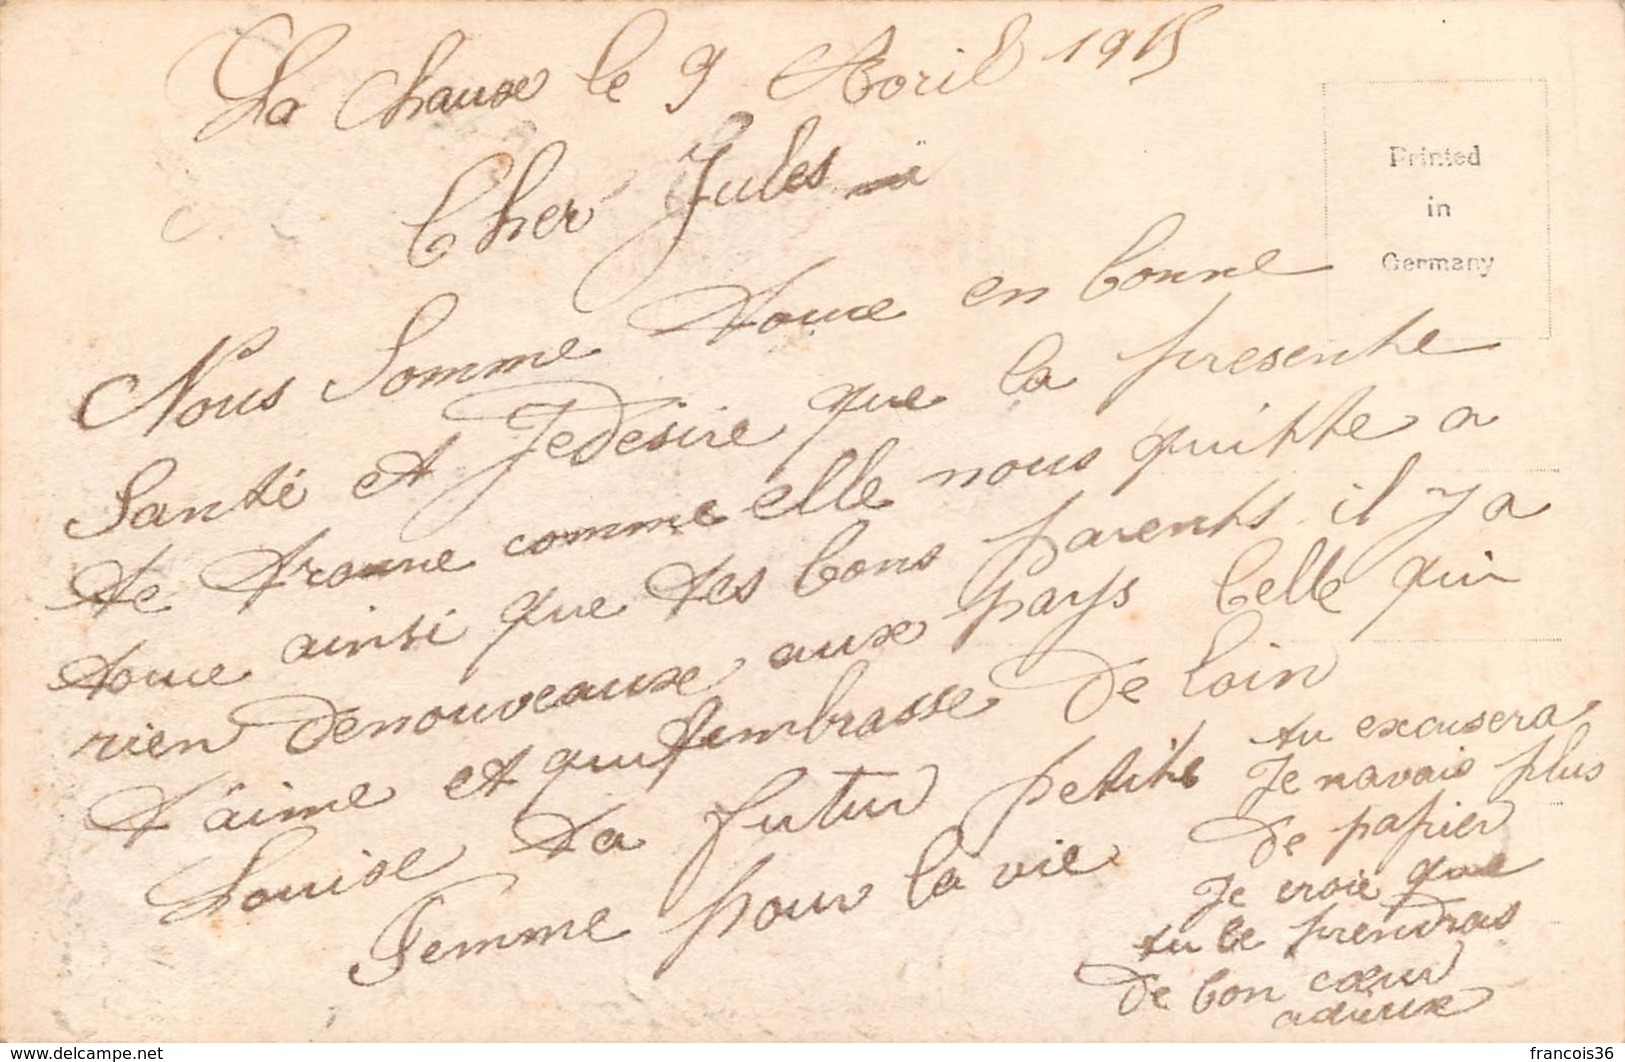 La Chaux le 9 Avril 1915
Cher Jules
Nous Somme toue en bonne
Santé et Je desire que la presente
te trouve comme elle nous quitte a
toue ainsi que tes bons parents il y a
rien de nouveaux aux pays Celle qui
t'aime et qui t'embrasse de loin
Louise ta futur petite
Femme pour la vie
tu excusera
Je navais plus
de papier
Je croie que
tu le prendras
de bon cœur
adieux
Printed
in
Germany
delcampe.net
francois36